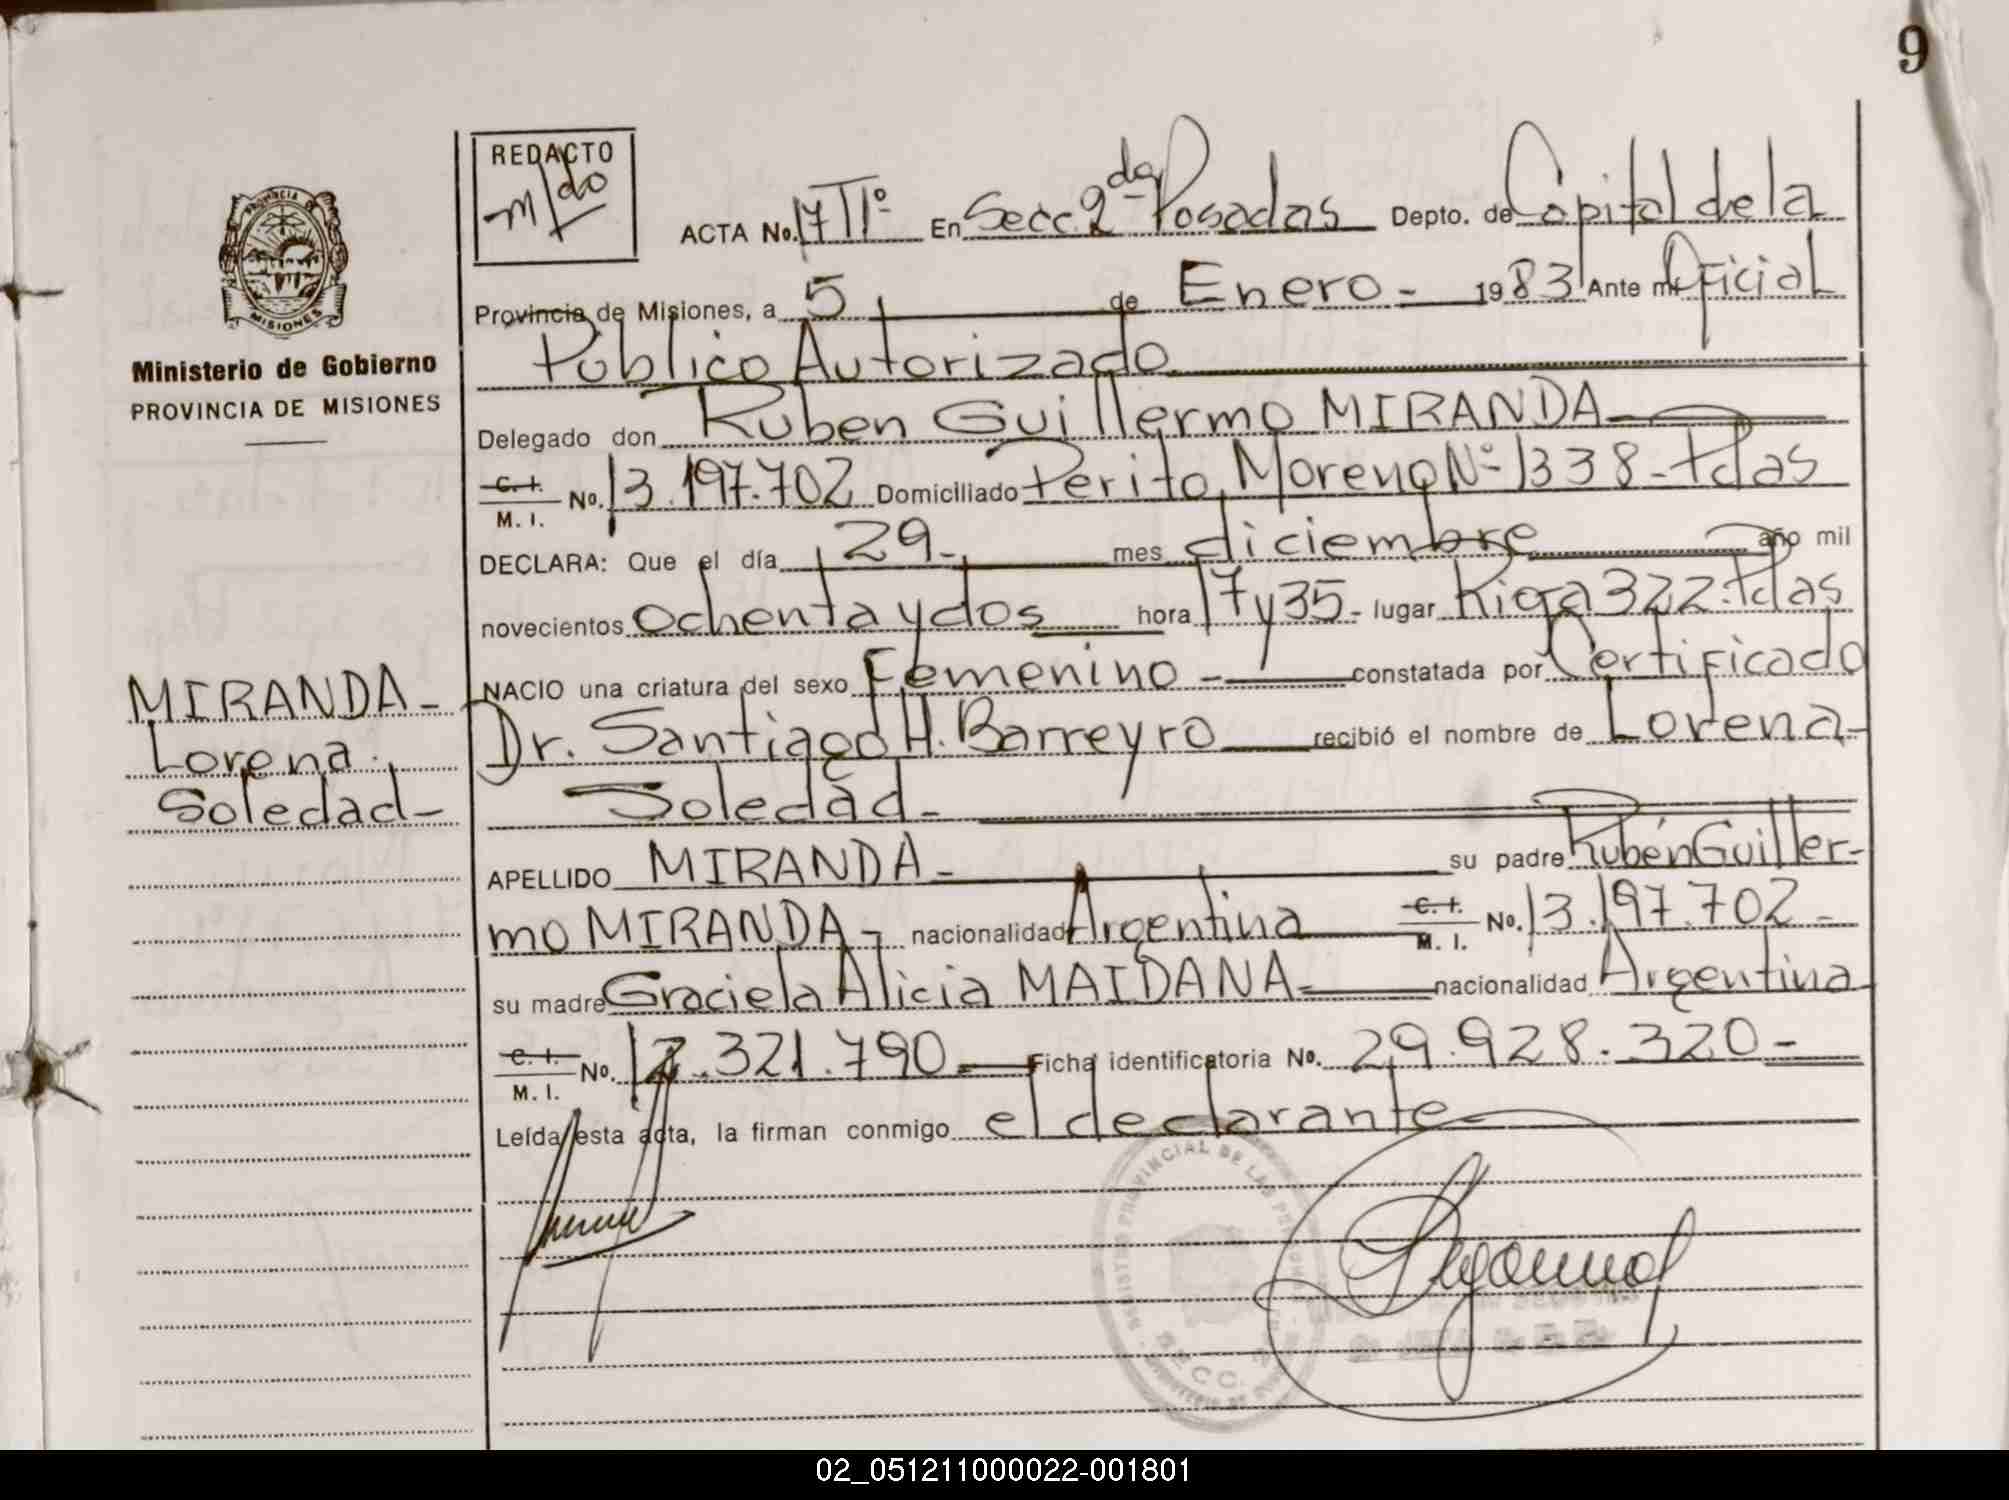 9
REDACTO
m/do
PROVINCIA DE MISIONES
Ministerio de Gobierno
PROVINCIA DE MISIONES
ACTA No. 17 Tº I En Secc. 2da Posadas Depto. de Capital de la
Provincia de Misiones, a 5 de Enero - 1983 Ante mi Oficial
Público Autorizado
Delegado don Ruben Guillermo MIRANDA
C. I. M. I. No. 13.197.702 Domiciliado Perito Moreno Nº 1338 - Pdas
DECLARA: Que el día 29 - mes diciembre año mil
novecientos ochenta y dos hora 17 y 35 - lugar Rioja 322 - Pdas
NACIO una criatura del sexo Femenino - constatada por Certificado
Dr. Santiago H. Barreyro recibió el nombre de Lorena -
Soledad -
APELLIDO MIRANDA - su padre Rubén Guiller-
mo MIRANDA - nacionalidad Argentina C. I. M. I. No. 13.197.702 -
su madre Graciela Alicia MAIDANA - nacionalidad Argentina
C. I. M. I. No. 12.321.790 - Ficha identificatoria No. 29.928.320 -
Leída esta acta, la firman conmigo el declarante
MIRANDA -
Lorena
Soledad -
REGISTRO PROVINCIAL DE LAS PERSONAS
02_051211000022-001801